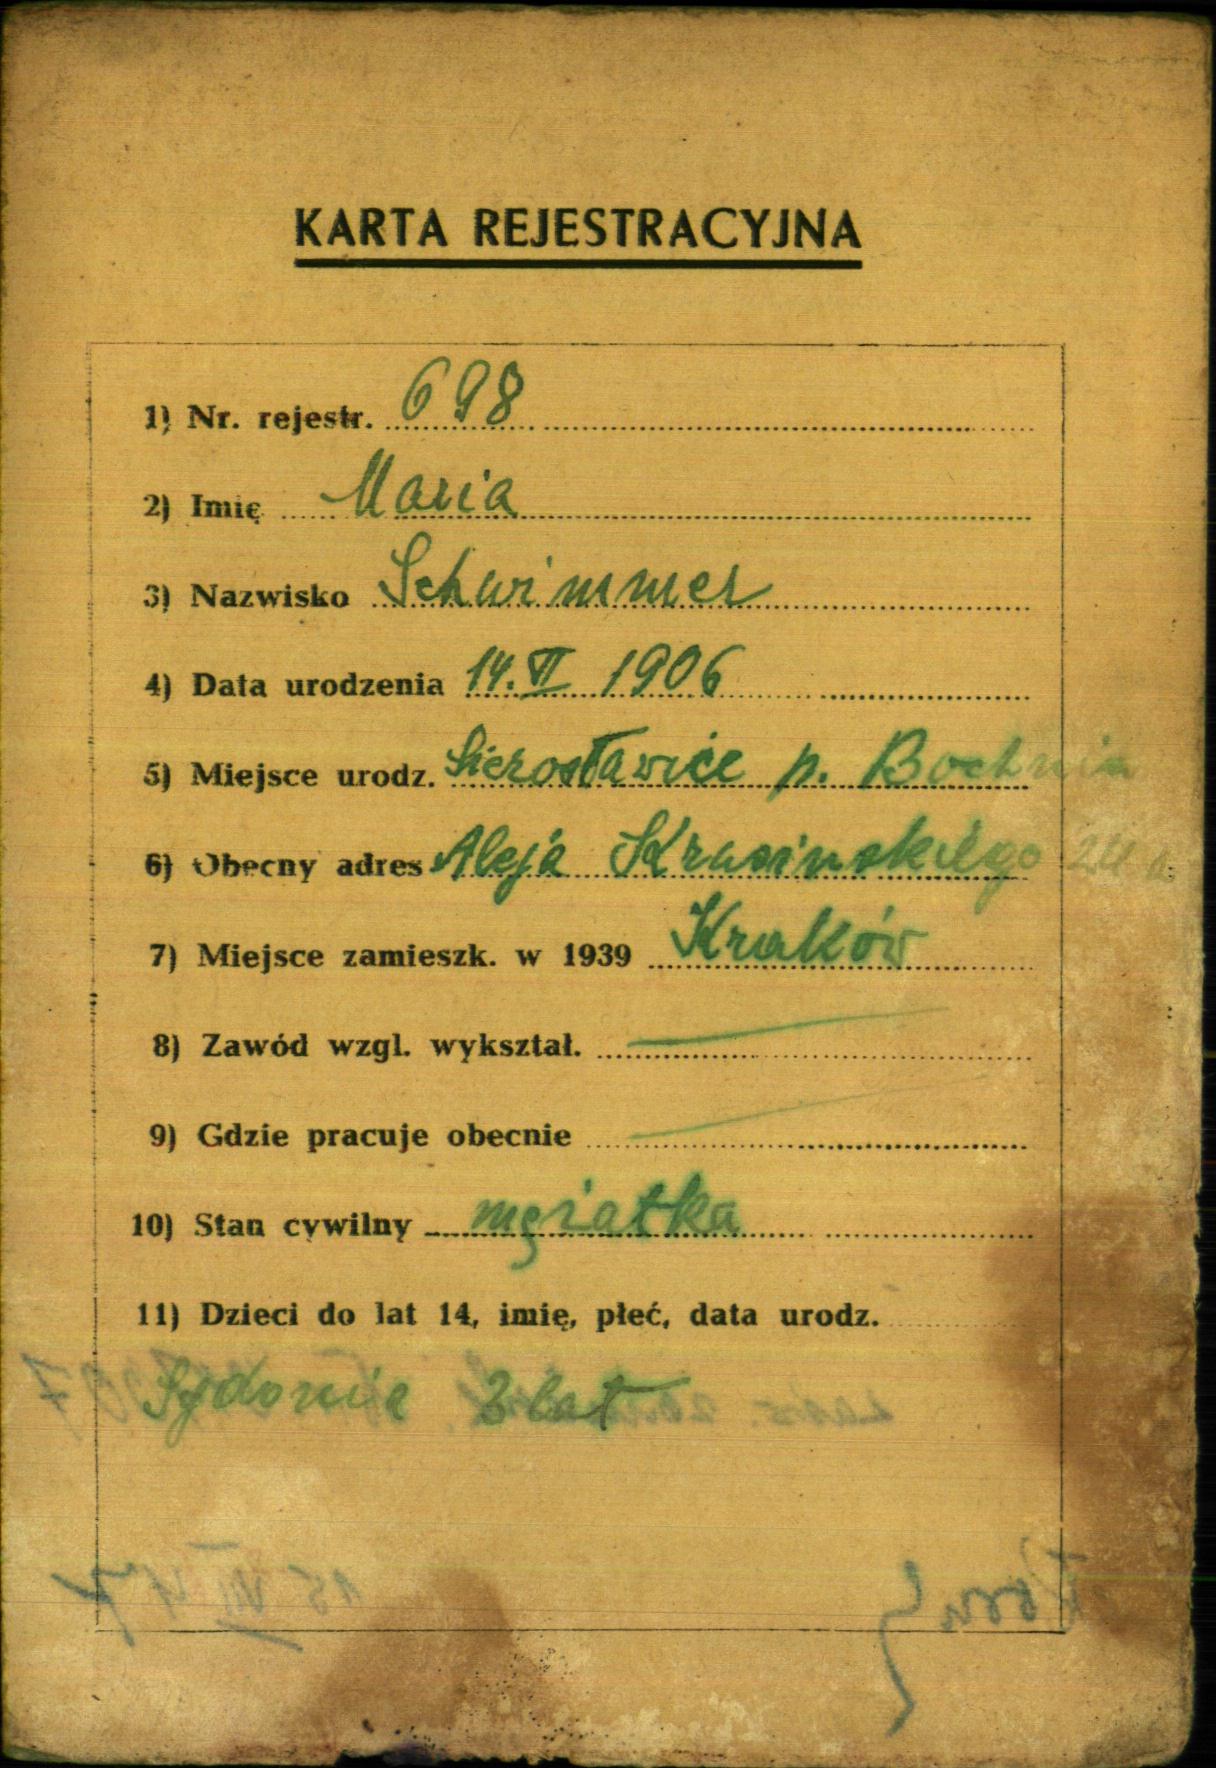 KARTA REJESTRACYJNA
1) Nr. rejestr. 698
2) Imię Maria
3) Nazwisko Schwimmer
4) Data urodzenia 14. VI 1906
5) Miejsce urodz. Sierosławice p. Bochnia
6) Obecny adres Aleja Krasinskiego
7) Miejsce zamieszk. w 1939 Kraków
8) Zawód wzgl. wykształ.
9) Gdzie pracuje obecnie
10) Stan cywilny mężatka
11) Dzieci do lat 14, imię, płeć, data urodz.
Sydonia 3 lat
15 VII 47